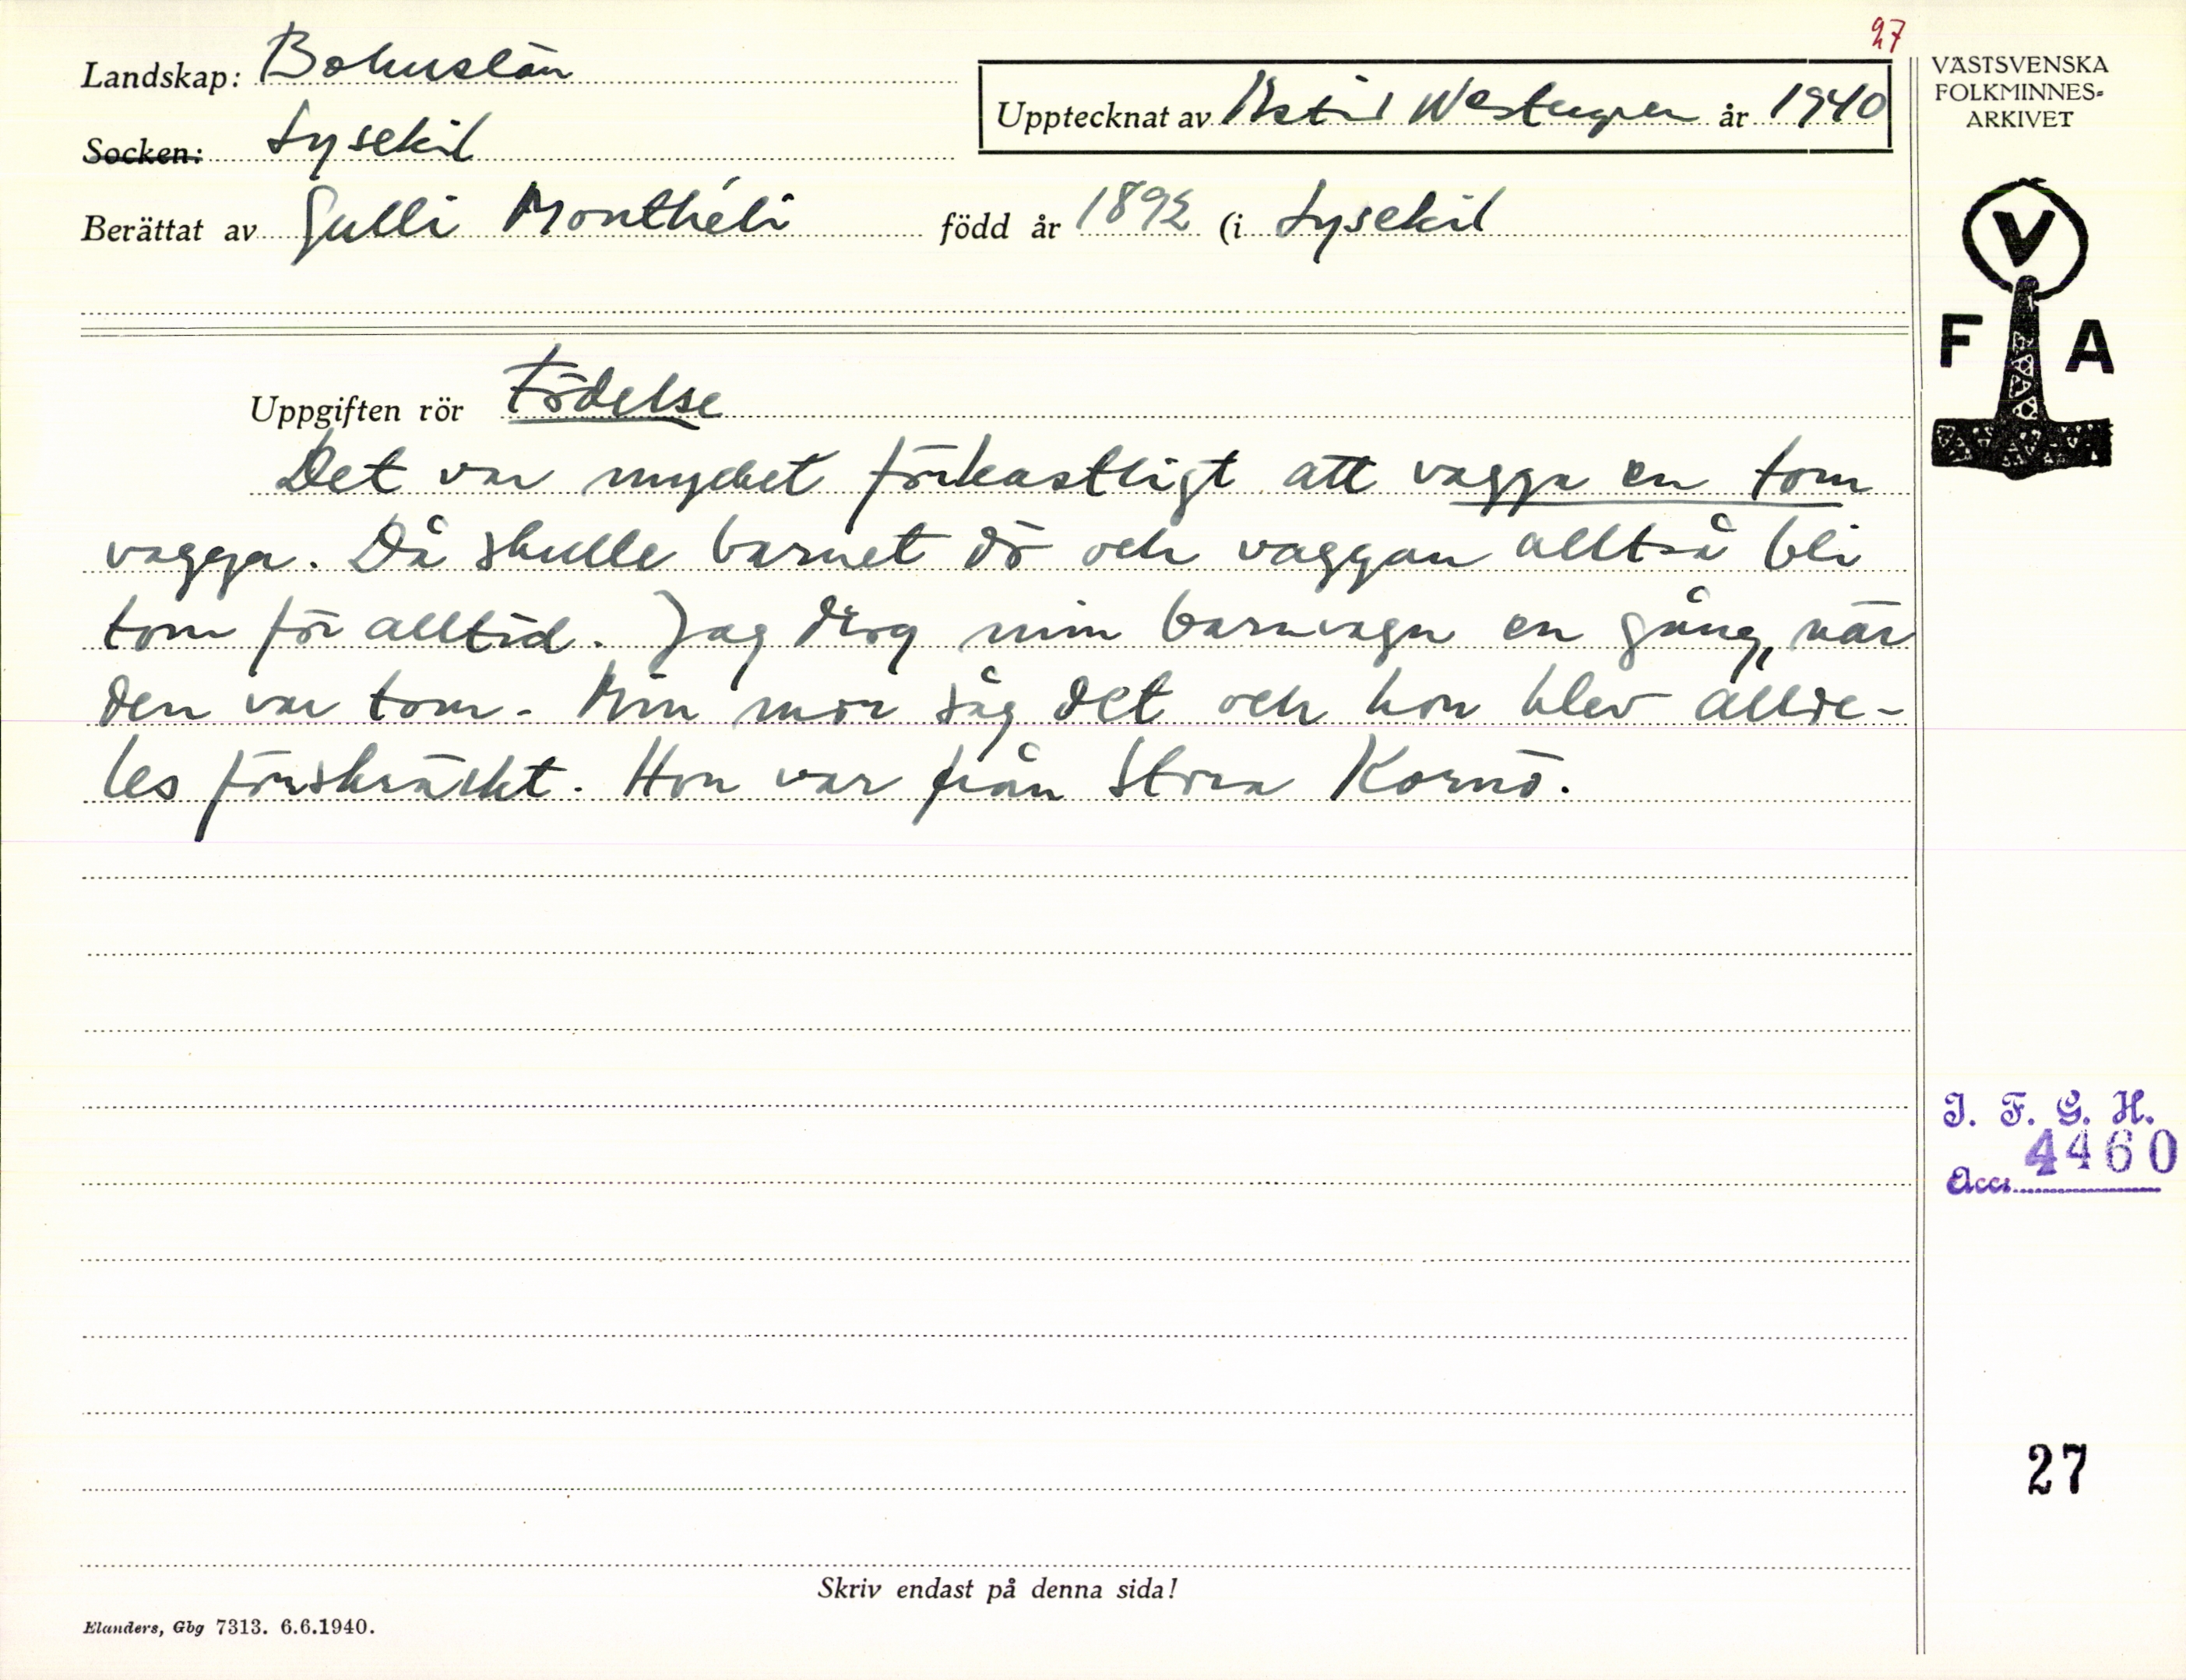 27
Landskap: Bohuslän
Upptecknat av Astrid Westergren år 1940
Socken: Lysekil
Berättat av Gulli Monthéli född år 1892 (i Lysekil
Uppgiften rör Födelse
Det var mycket förkastligt att vagga en tom
vagga. Då skulle barnet dö och vaggan alltså bli
tom för alltid. Jag drog min barnvagn en gång, när
den var tom. Min mor såg det och hon blev allde-
les förskräckt. Hon var från Stora Kornö.
Skriv endast på denna sida!
Elanders, Gbg 7313. 6.6.1940.
VÄSTSVENSKA
FOLKMINNES-
ARKIVET
V
F A
I. F. G. H.
4460
Acc.
27